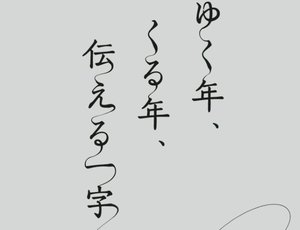 ゆく年、
くる年、
伝える一字